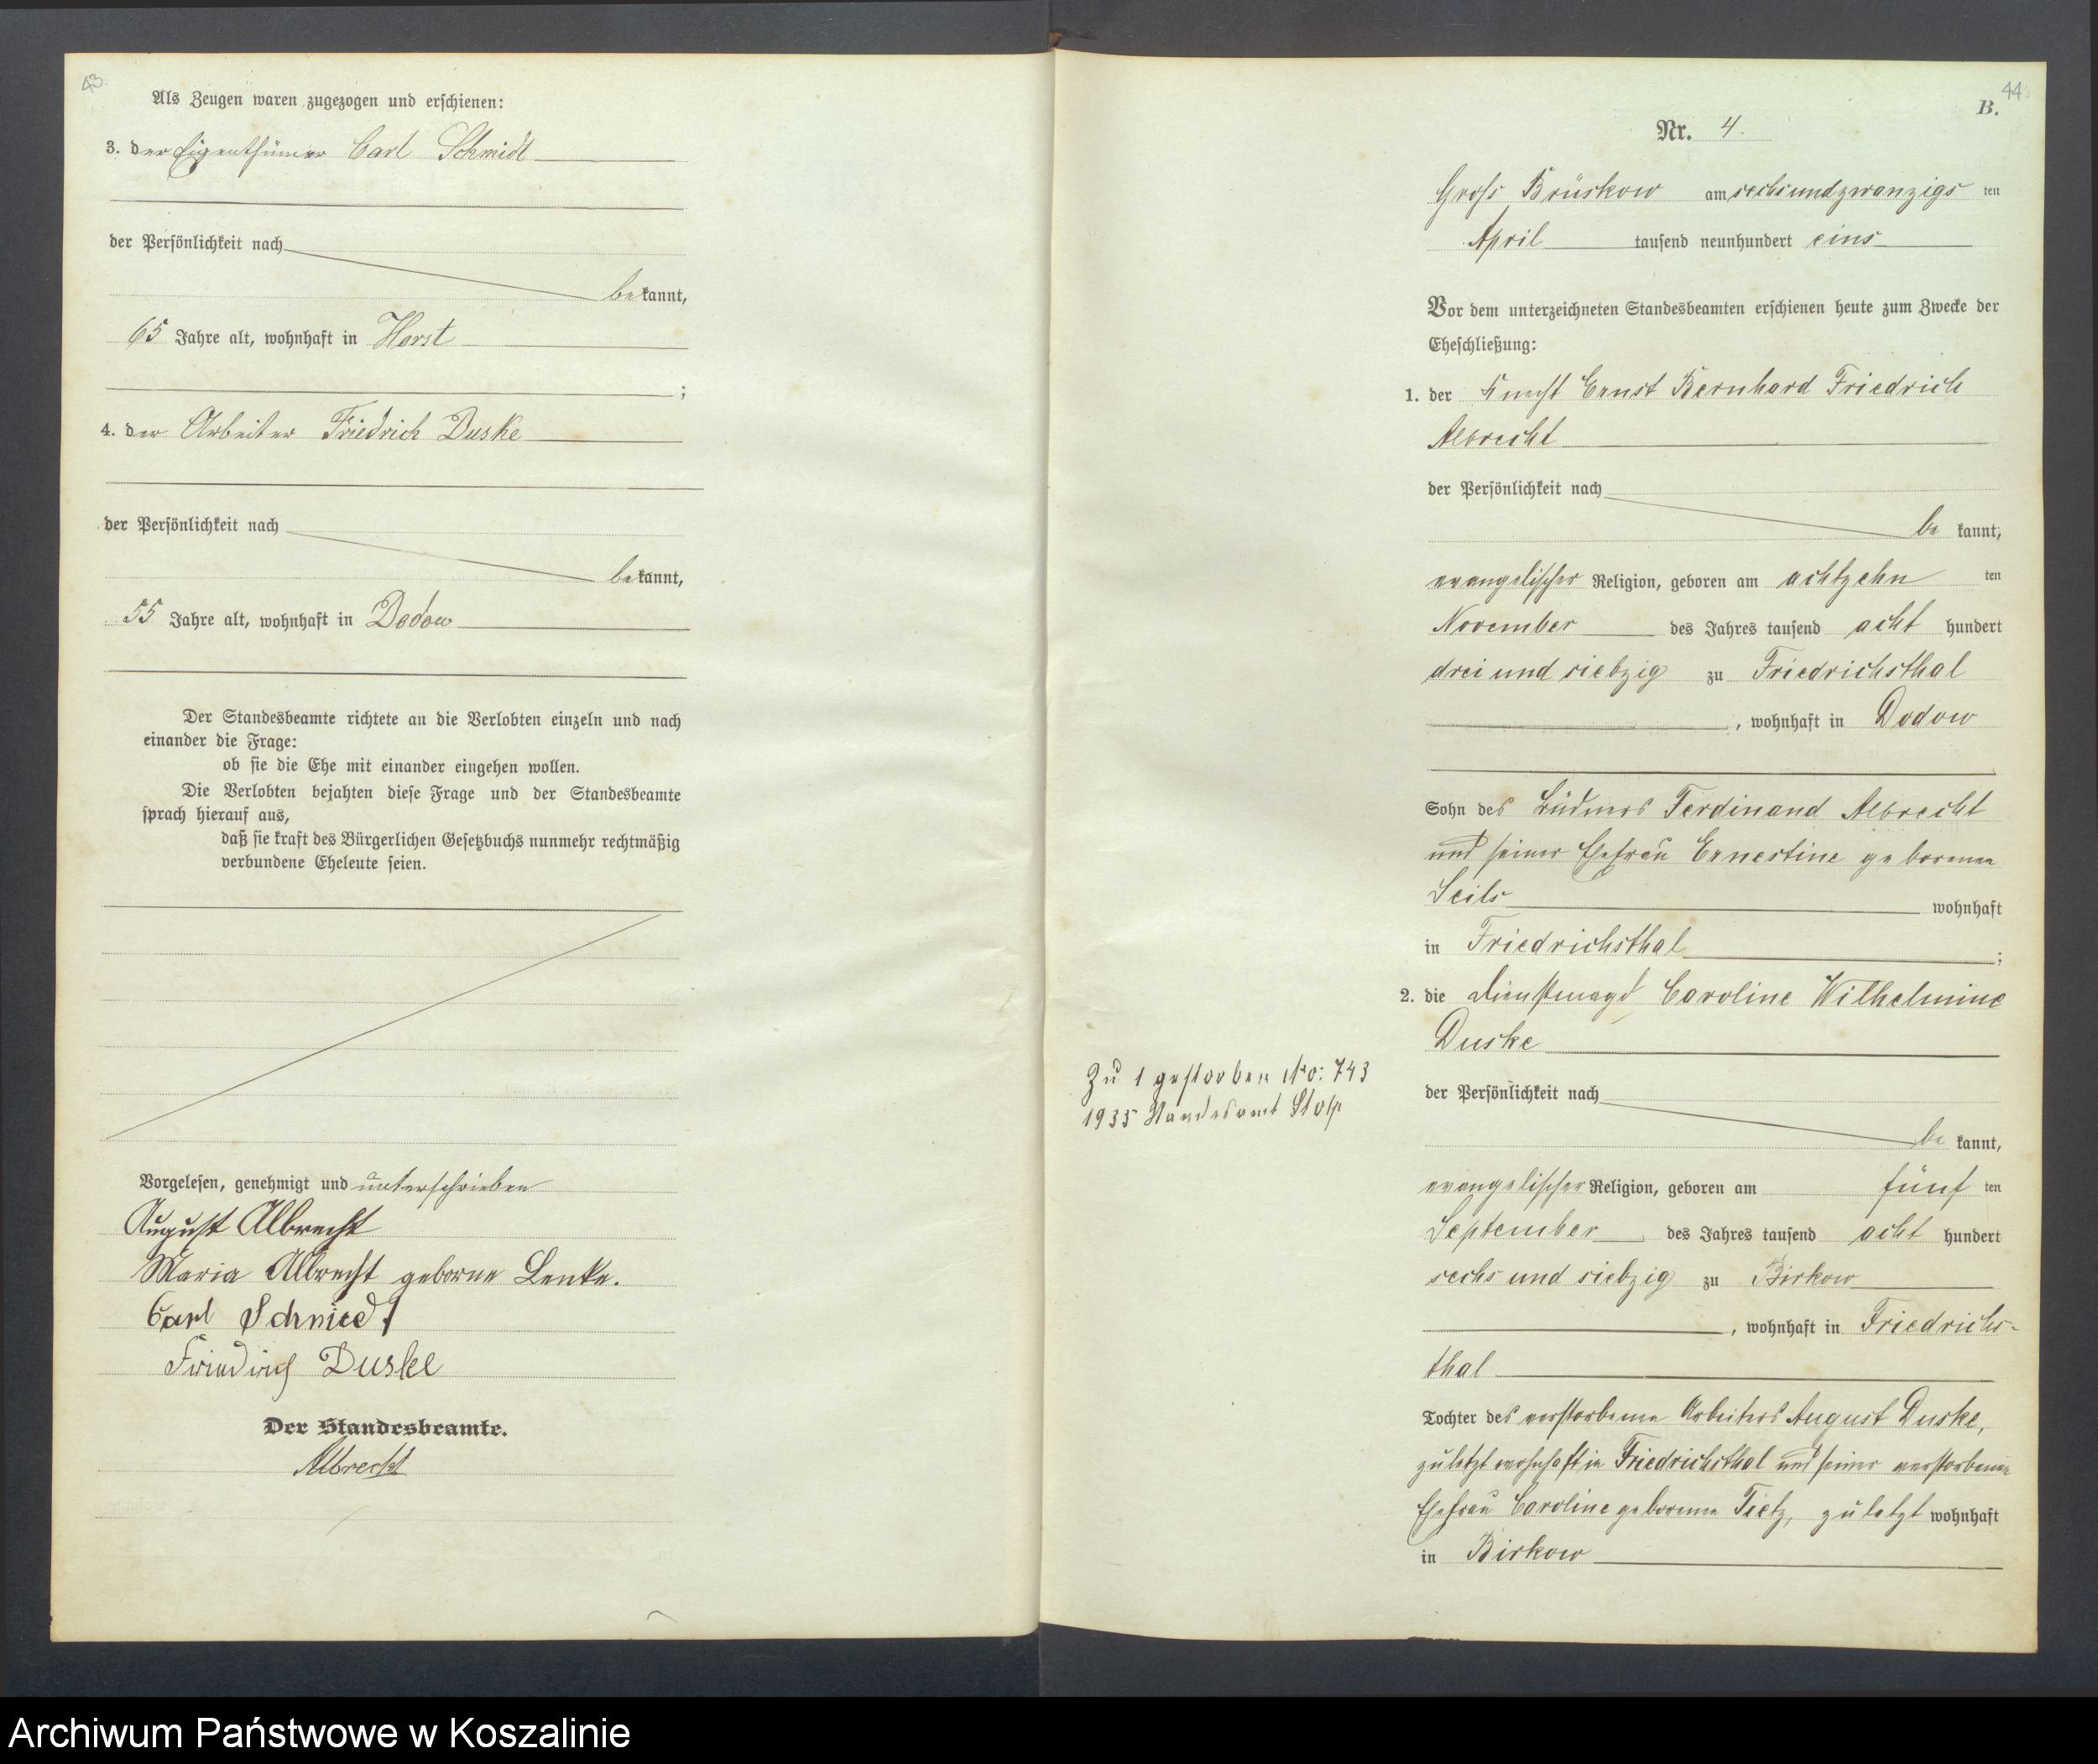 43
Als Zeugen waren zugezogen und erschienen:
3. der Eigenthümer Carl Schmidt
der Persönlichkeit nach
bekannt,
65 Jahre alt, wohnhaft in Horst
;
4. der Arbeiter Friedrich Duske
der Persönlichkeit nach
bekannt,
55 Jahre alt, wohnhaft in Dodow
Der Standesbeamte richtete an die Verlobten einzeln und nach
einander die Frage:
ob sie die Ehe mit einander eingehen wollen.
Die Verlobten bejahten diese Frage und der Standesbeamte
sprach hierauf aus,
daß sie kraft des Bürgerlichen Gesetzbuchs nunmehr rechtmäßig
verbundene Eheleute seien.
Vorgelesen, genehmigt und unterschrieben
August Albrecht
Maria Albrecht geborne Lenke.
Carl Schmiedt
Friedrich Duske
Der Standesbeamte.
Albrecht
44
B.
Nr. 4.
Gross Brüskow am sechsundzwanzigsten
April tausend neunhundert eins
Vor dem unterzeichneten Standesbeamten erschienen heute zum Zwecke der
Eheschließung:
1. der Knecht Ernst Bernhard Friedrich
Albrecht
der Persönlichkeit nach
be kannt,
evangelischer Religion, geboren am achtzehn ten
November des Jahres tausend acht hundert
drei und siebzig zu Friedrichsthal
, wohnhaft in Dodow
Sohn des Büdners Ferdinand Albrecht
und seiner Ehefrau Ernestine geborenen
Seils wohnhaft
in Friedrichsthal ;
2. die Dienstmagd Caroline Wilhelmine
Duske
der Persönlichkeit nach
be kannt,
evangelischer Religion, geboren am fünf ten
September des Jahres tausend acht hundert
sechs und siebzig zu Birkow
, wohnhaft in Friedrichs-
thal
Tochter des verstorbenen Arbeiters August Duske,
zuletzt wohnhaft in Friedrichsthal und seiner verstorbenen
Ehefrau Caroline geborenen Tietz, zuletzt wohnhaft
in Birkow
Zu 1 gestorben No: 743
1935 Standesamt Stolp
Archiwum Państwowe w Koszalinie